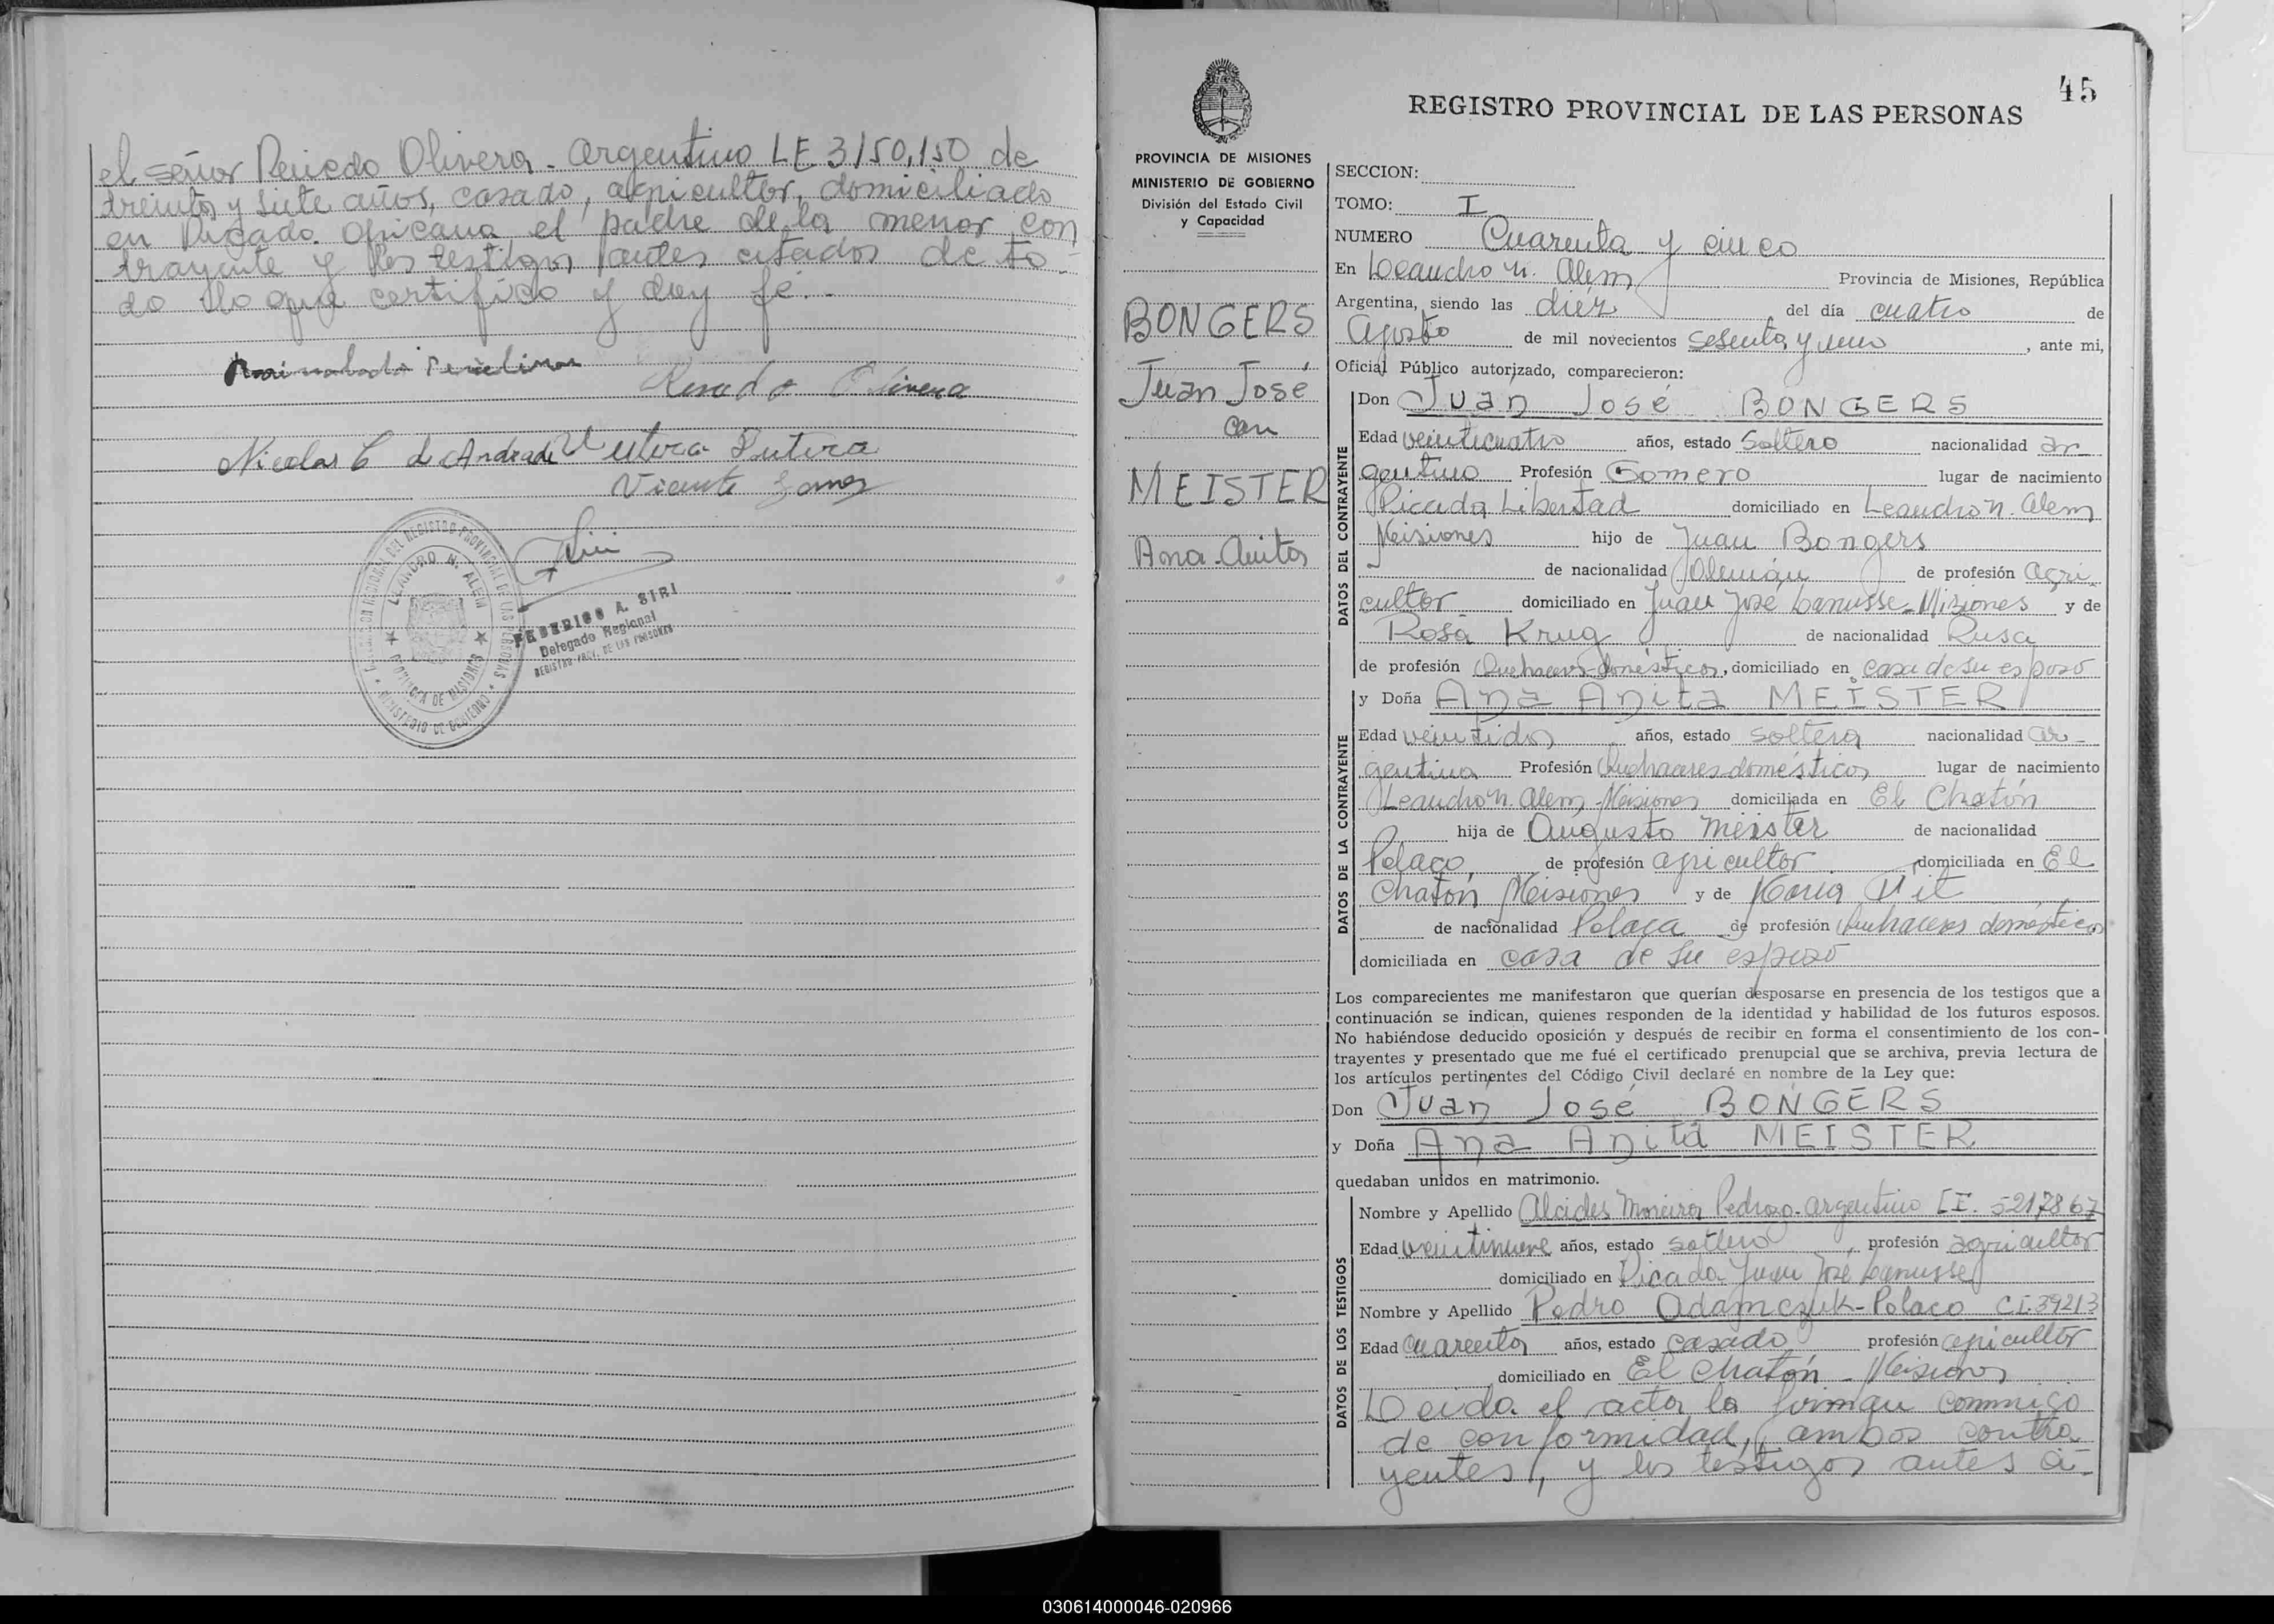 el señor Penedo Olivera - argentino LE 3150,150 de
treinta y siete años, casado, agricultor, domiciliado
en Picada. Africana el padre de la menor con
trayente y los testigos antes citados de to-
do lo que certifico y doy fé.-
Olivera
Nicolas C de Andrade
Vicente Gomez
DELEGACION REGIONAL DEL REGISTRO PROVINCIAL DE LAS PERSONAS
LEANDRO N. ALEM
PROVINCIA DE MISIONES
MINISTERIO DE GOBIERNO
FEDERICO A. SIRI
Delegado Regional
REGISTRO PROV. DE LAS PERSONAS
45
REGISTRO PROVINCIAL DE LAS PERSONAS
PROVINCIA DE MISIONES
MINISTERIO DE GOBIERNO
División del Estado Civil
y Capacidad
BONGERS
Juan José
con
MEISTER
Ana Anita
SECCION:
TOMO: I
NUMERO Cuarenta y cinco
En Leandro N. Alem Provincia de Misiones, República
Argentina, siendo las diéz del día cuatro de
Agosto de mil novecientos sesenta y uno, ante mi,
Oficial Público autorizado, comparecieron:
DATOS DEL CONTRAYENTE
Don Juan José BONGERS
Edad veinticuatro años, estado Soltero nacionalidad ar-
gentino Profesión Gomero lugar de nacimiento
Picada Libertad domiciliado en Leandro N. Alem
Misiones hijo de Juan Bongers
de nacionalidad Alemán de profesión Agri-
cultor domiciliado en Juan José Lanusse-Misiones y de
Rosa Krug de nacionalidad Rusa
de profesión Quehaceres domésticos, domiciliado en casa de su esposo
DATOS DE LA CONTRAYENTE
y Doña Ana Anita MEISTER
Edad veintidos años, estado soltera nacionalidad ar-
gentina Profesión Quehaceres domésticos lugar de nacimiento
Leandro N. Alem-Misiones domiciliada en El Chatón
hija de Augusto Meister de nacionalidad
Polaco, de profesión agricultor domiciliada en El
Chatón Misiones y de Maria Pit
de nacionalidad Polaca de profesión Quehaceres domésticos
domiciliada en casa de su esposo
Los comparecientes me manifestaron que querían desposarse en presencia de los testigos que a
continuación se indican, quienes responden de la identidad y habilidad de los futuros esposos.
No habiéndose deducido oposición y después de recibir en forma el consentimiento de los con-
trayentes y presentado que me fué el certificado prenupcial que se archiva, previa lectura de
los artículos pertinentes del Código Civil declaré en nombre de la Ley que:
Don Juan José BONGERS
y Doña Ana Anita MEISTER
quedaban unidos en matrimonio.
DATOS DE LOS TESTIGOS
Nombre y Apellido Alcides Moreira Pedrozo-argentino LE. 5217867
Edad veintinueve años, estado soltero, profesión agricultor
domiciliado en Picada Juan José Lanusse
Nombre y Apellido Pedro Adamczuk-Polaco C.I.39213
Edad cuarenta años, estado casado profesión agricultor
domiciliado en El Chatón - Misiones
Leida el acta la firman conmigo
de conformidad, ambos contra
yentes, y los testigos antes ci-
030614000046-020966